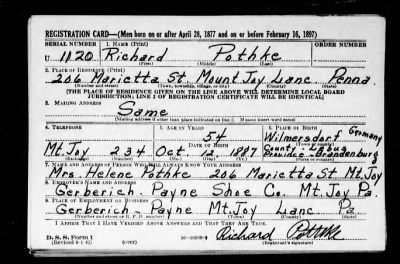 REGISTRATION CARD—(Men born on or after April 28, 1877 and on or before February 16, 1897)
SERIAL NUMBER 1. NAME (Print) ORDER NUMBER
U 1120 Richard Pothke
(First) (Middle) (Last)
2. PLACE OF RESIDENCE (Print)
206 Marietta St. Mount Joy Lanc. Penna.
(Number and street) (Town, township, village, or city) (County) (State)
[THE PLACE OF RESIDENCE GIVEN ON THE LINE ABOVE WILL DETERMINE LOCAL BOARD
JURISDICTION; LINE 2 OF REGISTRATION CERTIFICATE WILL BE IDENTICAL]
3. MAILING ADDRESS
Same
[Mailing address if other than place indicated on line 2. If same insert word same]
4. TELEPHONE 5. AGE IN YEARS 6. PLACE OF BIRTH
54 Wilmersdorf Germany
DATE OF BIRTH (Town or county)
Mt. Joy 234 Oct 1887
Province-Brandenburg
(Exchange) (Number) (Mo.) (Day) (Yr.) (State or country)
7. NAME AND ADDRESS OF PERSON WHO WILL ALWAYS KNOW YOUR ADDRESS
Mrs. Helene Pothke 206 Marietta St. Mt Joy
8. EMPLOYER'S NAME AND ADDRESS
Gerberich-Payne Shoe Co. Mt. Joy Pa.
9. PLACE OF EMPLOYMENT OR BUSINESS
Gerberich-Payne Mt. Joy Lanc Pa.
(Number and street or R. F. D. number) (Town) (County) (State)
I AFFIRM THAT I HAVE VERIFIED ABOVE ANSWERS AND THAT THEY ARE TRUE.
D. S. S. Form 1 Richard Pothke
(Revised 4-1-42) (over) (Registrant's signature)